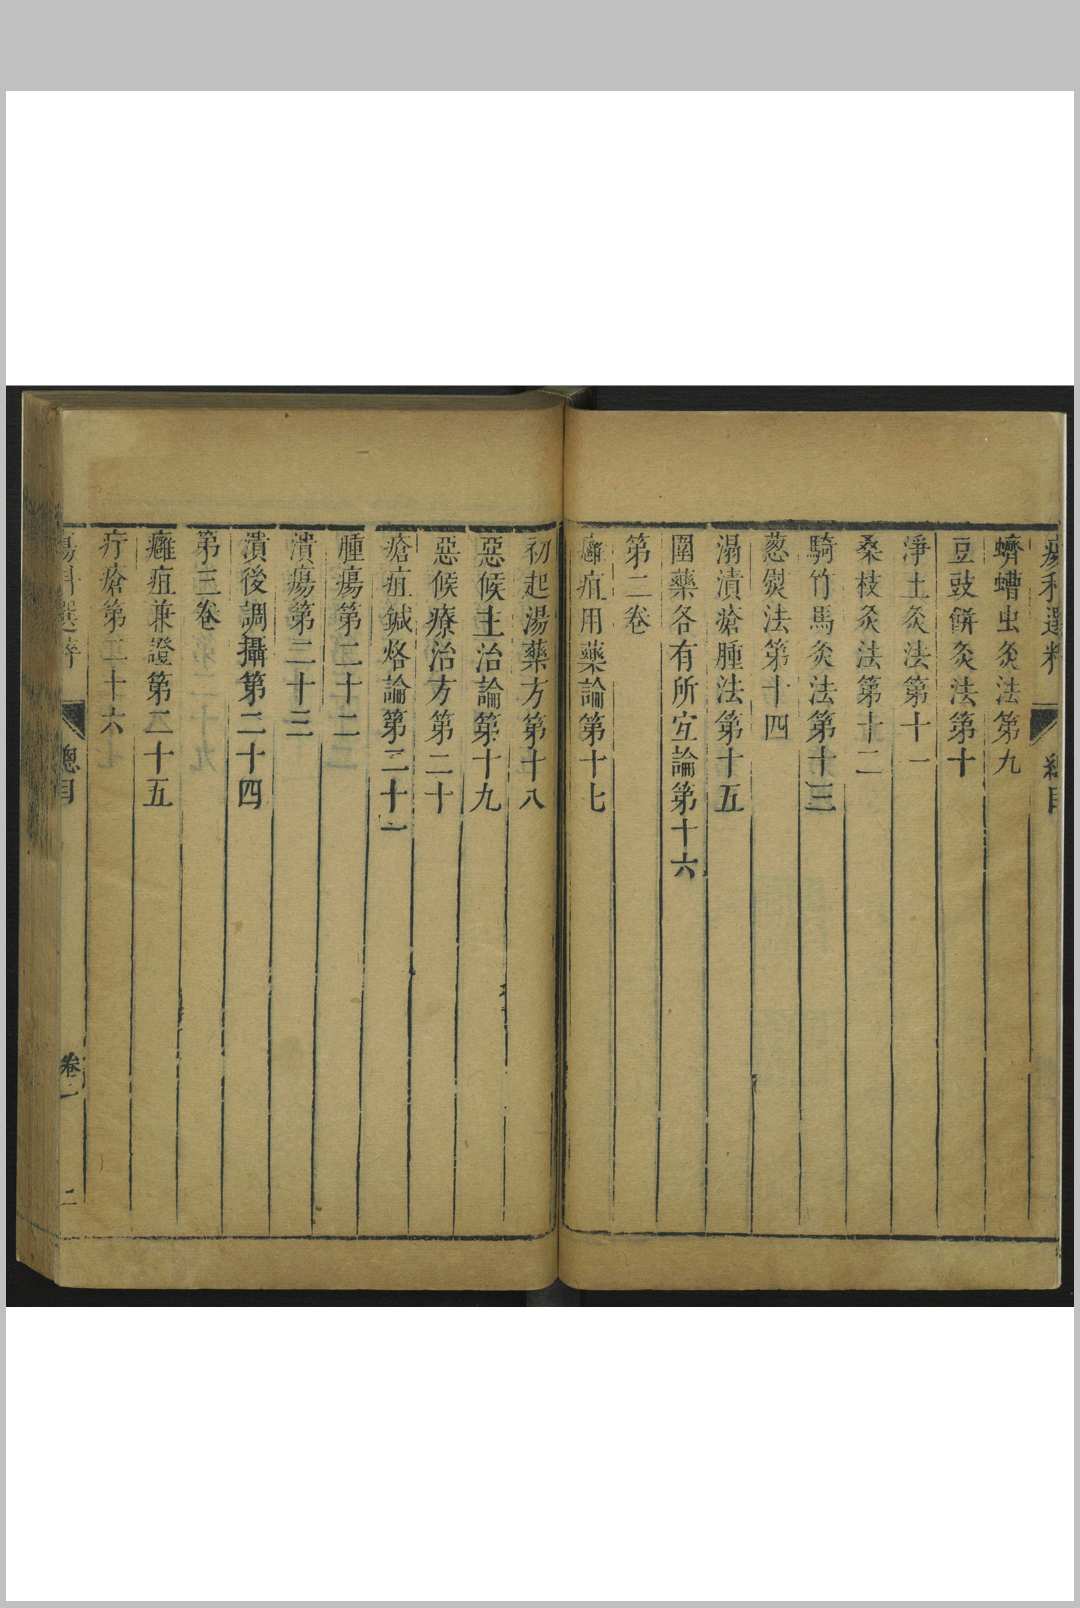 蠐螬虫灸法第九
豆豉餅灸法第十
淨土灸法第十一
桑枝灸法第十二
騎竹馬灸法第十三
葱熨法第十四
溻漬瘡腫法第十五
圍藥各有所宜論第十六
第二卷
癰疽用藥論第十七
初起湯藥方第十八
惡候主治論第十九
惡候療治方第二十
瘡疽鍼烙論第二十一
腫瘍第二十二
潰瘍第二十三
潰後調攝第二十四
第三卷
癰疽兼證第二十五
疔瘡第二十六
瘍科選粹
總目
卷二
二